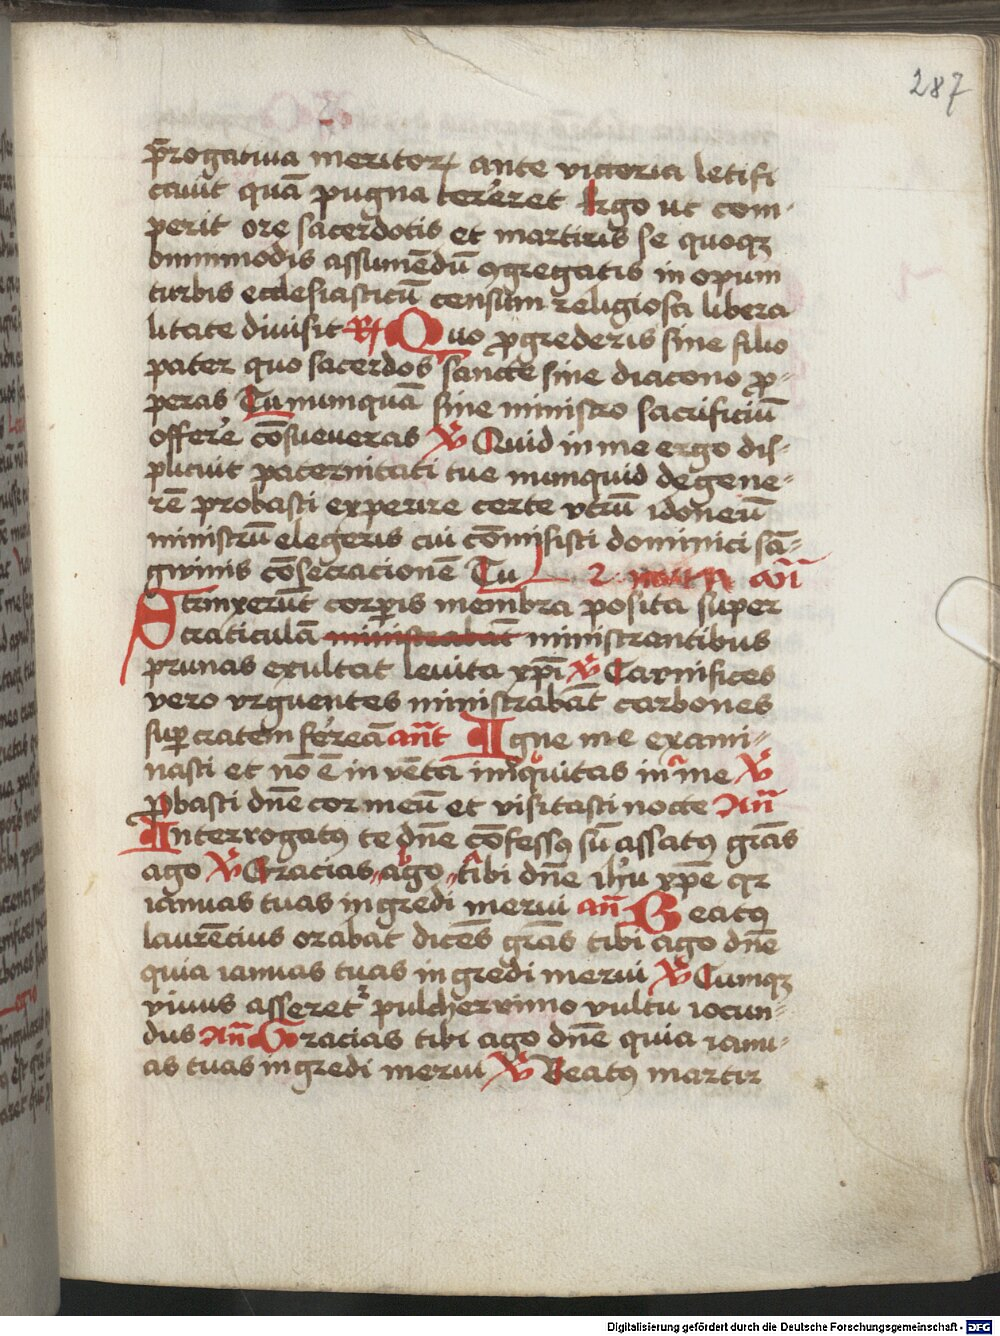 287
p̄rogatiua meritoꝝ ante victoria letifi
cauit quā pugna tereret Ergo ut com-
perit ore sacerdotis et martiris se quoqꝫ
assumēdū ꝯgregatis in opum
turbis ecclesiasticū censum religiosa libera
litate diuisit R̷ Quo ꝓgrederis sine filio
pater quo sacerdos sancte sine diacono ꝓ-
peras Tu numquā sine ministro sacrificiū
offerre cōsueueras ꝟ Quid in me ergo dis-
plicuit paternitati tue numquid degene-
rē probasti experire certe vtrū idoneū
ministrū elegeris cui cōmisisti dominici sā-
gwinis cōsecracionē Tu añ
Strinxerūt corꝑis membra posita super
craticulā ministrabāt ministrantibus
prunas exultat leuita xp̄i ꝟ Carnifices
vero vrguentes ministrabāt carbones
suꝑ cratem ferreā añt Igne me exami-
nasti et nō ē in vēta iniqͥuitas in me ꝟ
ꝓbasti dn̄e cor meū et visitasti nocte Añ
Interrogatꝰ te dn̄e cōfessꝰ sū assatꝰ grās
ago ꝟ Gracias ago tibi dn̄e ihū xp̄e qr
ianuas tuas ingredi merui añ Beatꝰ
laurēcius orabat dicēs grās tibi ago dn̄e
quia ianuas tuas ingredi merui ꝟ Cumqꝫ
viuus assaret' pulcherrimo vultu iocun-
dus Añ Gracias tibi ago dn̄e quia ianu-
as tuas ingredi merui ꝟ Beatꝰ martir
Digitalisierung gefördert durch die Deutsche Forschungsgemeinschaft - DFG